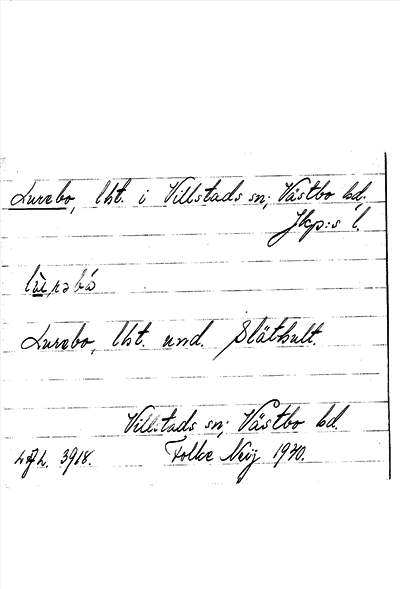 Lurebo, lht. i Villstads sn; Västbo hd,
Jkp:s l.
Lurebo, lht. und. Släthult.
Villstads sn; Västbo hd.
3918. Folke Neij 1930.